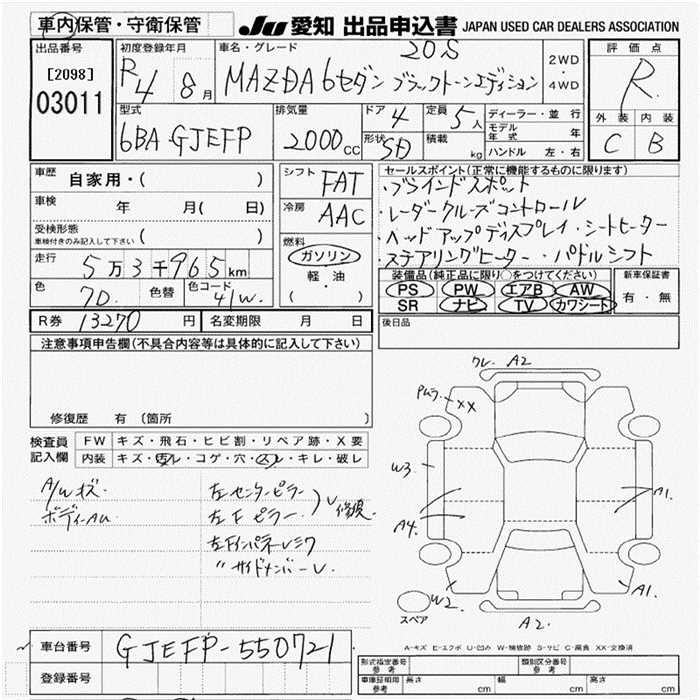 車内保管・守衛保管 JU 愛知 出品申込書 JAPAN USED CAR DEALERS ASSOCIATION
出品番号 初度登録年月 車名・グレード 20S 評価点
[2098] R4 8月 MAZDA6セダン ブラックトーンエディション 2WD・4WD R
03011
型式 排気量 ドア 4 定員 5人 ディーラー・並行 外装 内装
6BA-GJEFP 2000CC 形状 SD 積載 kg モデル年式 年 C B
ハンドル 左・右
車歴 自家用・( ) シフト FAT セールスポイント(正常に機能するものに限ります)
車検 年 月( 日) 冷房 AAC ・ブラインドスポット
・レーダークルーズコントロール
受検形態 ( ) ・ヘッドアップディスプレイ・シートヒーター
車検付きのみ記入して下さい
燃料 ガソリン ・ステアリングヒーター・パドルシフト
走行 5万3千965km 軽・油 装備品(純正品に限り○をつけてください) 新車保証書
色 7D. 色替 色コード 41W. ( ) PS PW エアB AW 有・無
SR ナビ TV カワシート
R券 13270円 名変期限 月 日 後日品
注意事項申告欄(不具合内容等は具体的に記入して下さい)
修復歴 有 (箇所
検査員 FW キズ・飛石・ヒビ割・リペア跡・X要
記入欄 内装 キズ・汚レ・コゲ・穴・スレ・キレ・破レ
A/Wキズ. 左センターピラー
ボディーAU 左Fピラー. )レ修現.
左Fインパネレミク
〃サイドメンバーレ.
クレ. A2
PWラ- XX
W3
A4.
A1.
W2
A1.
スペア
A2.
A-キズ E-エクボ U-凹み W-補修跡 S-サビ C-腐食 XX-交換済
車台番号 GJEFP-550721
登録番号
型式指定番号 参考 類別区分番号 参考
車庫証明用 参考 長さ cm 幅 cm 高さ cm